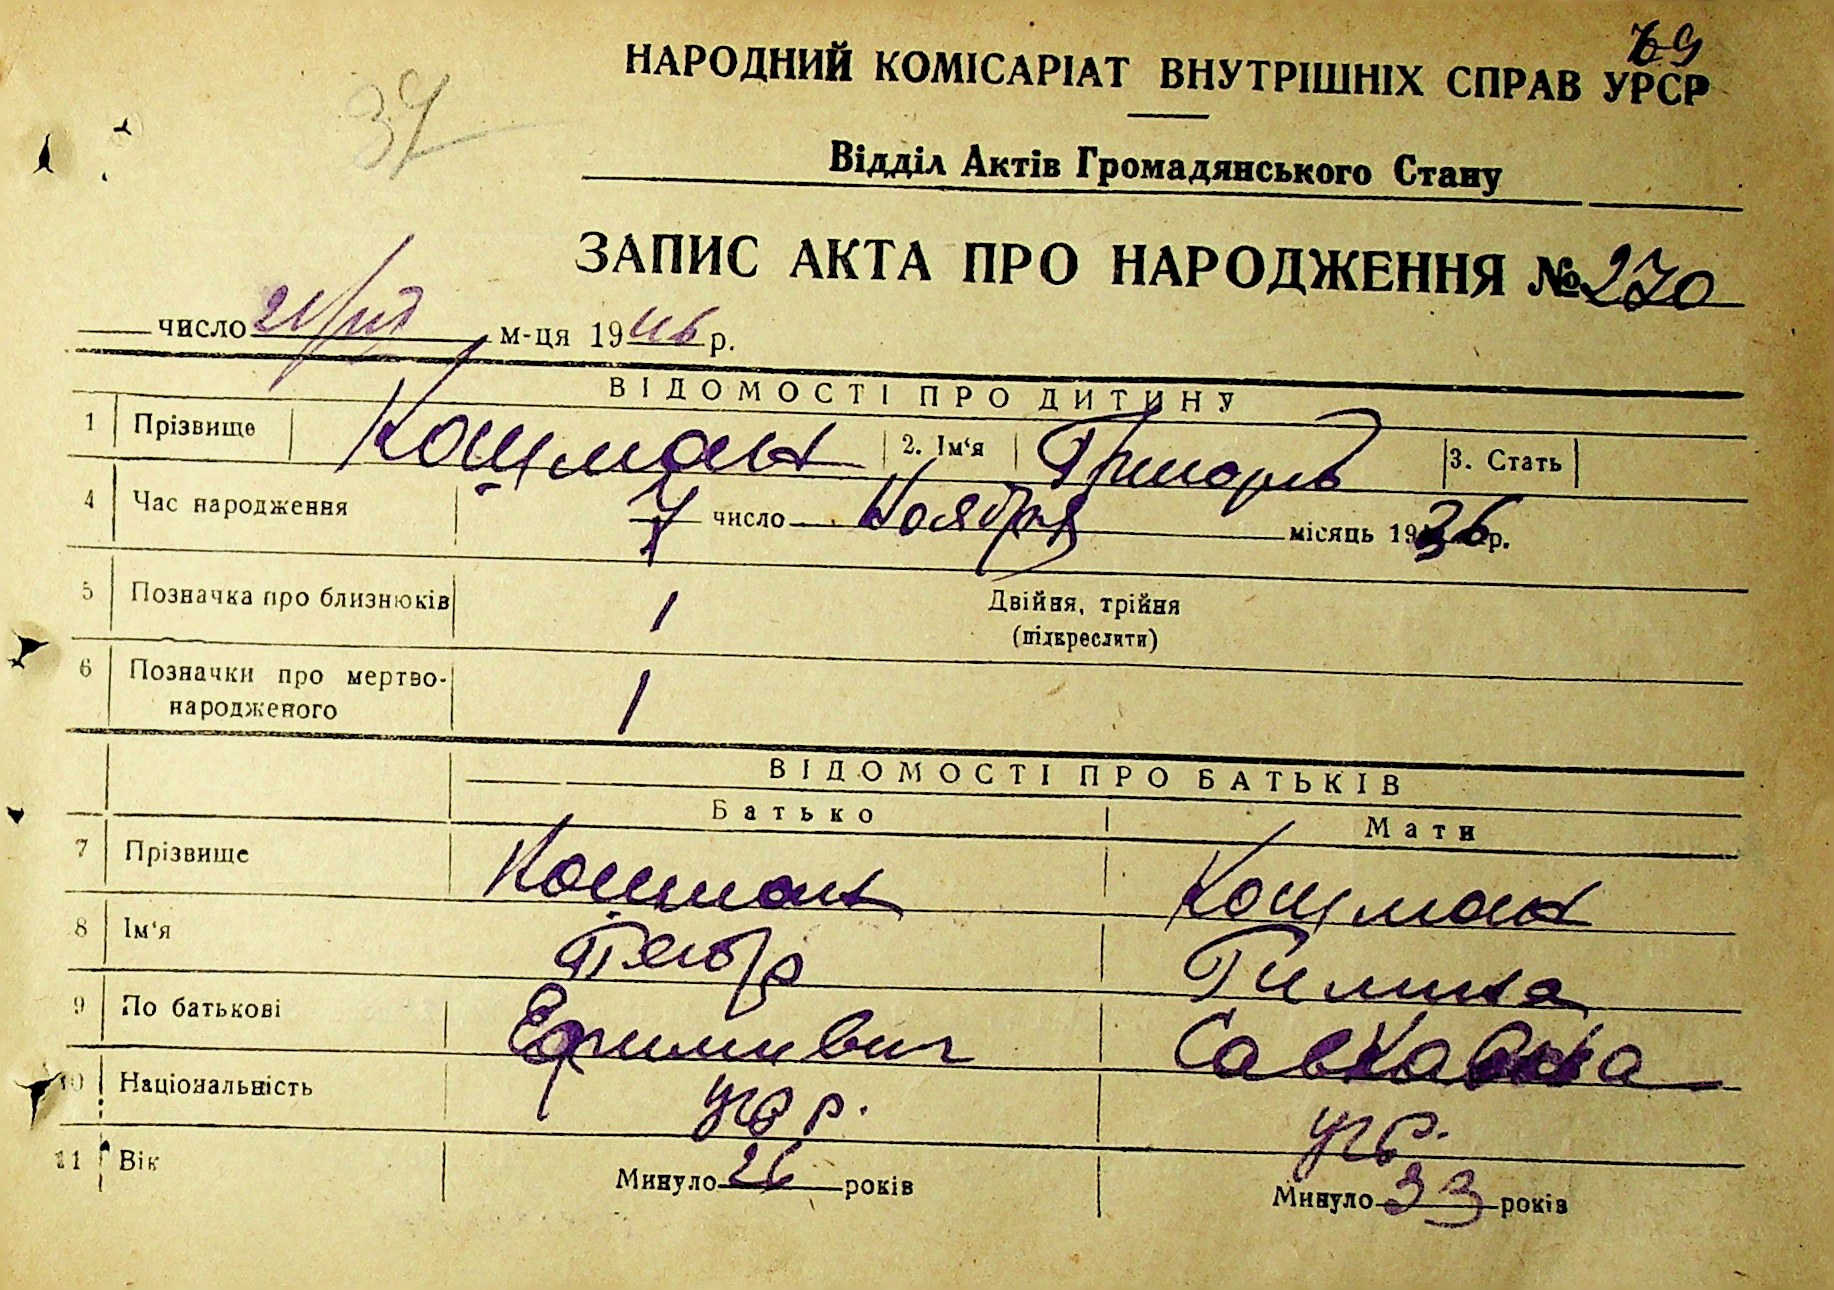 69
37
НАРОДНИЙ КОМІСАРІАТ ВНУТРІШНІХ СПРАВ УРСР
Відділ Актів Громадянського Стану
ЗАПИС АКТА ПРО НАРОДЖЕННЯ № 270
число м-ця 1946 р.
ВІДОМОСТІ ПРО ДИТИНУ
1 Прізвище Кошман 2. Ім'я Григорій 3. Стать
4 Час народження 7 число Ноября місяць 1936 р.
5 Позначка про близнюків Двійня, трійня
(підкреслити)
6 Позначки про мертво-
народженого
ВІДОМОСТІ ПРО БАТЬКІВ
Батько Мати
7 Прізвище Кошман Кошман
8 Ім'я Петр Галина
9 По батькові Ефимивич
10 Національність укр. укр.
11 Вік Минуло 26 років Минуло 33 років